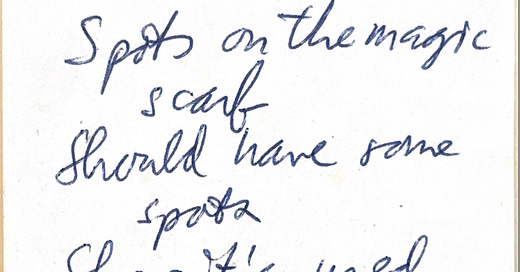 Spots on the magic
scarf
Should have some
spots
it's used